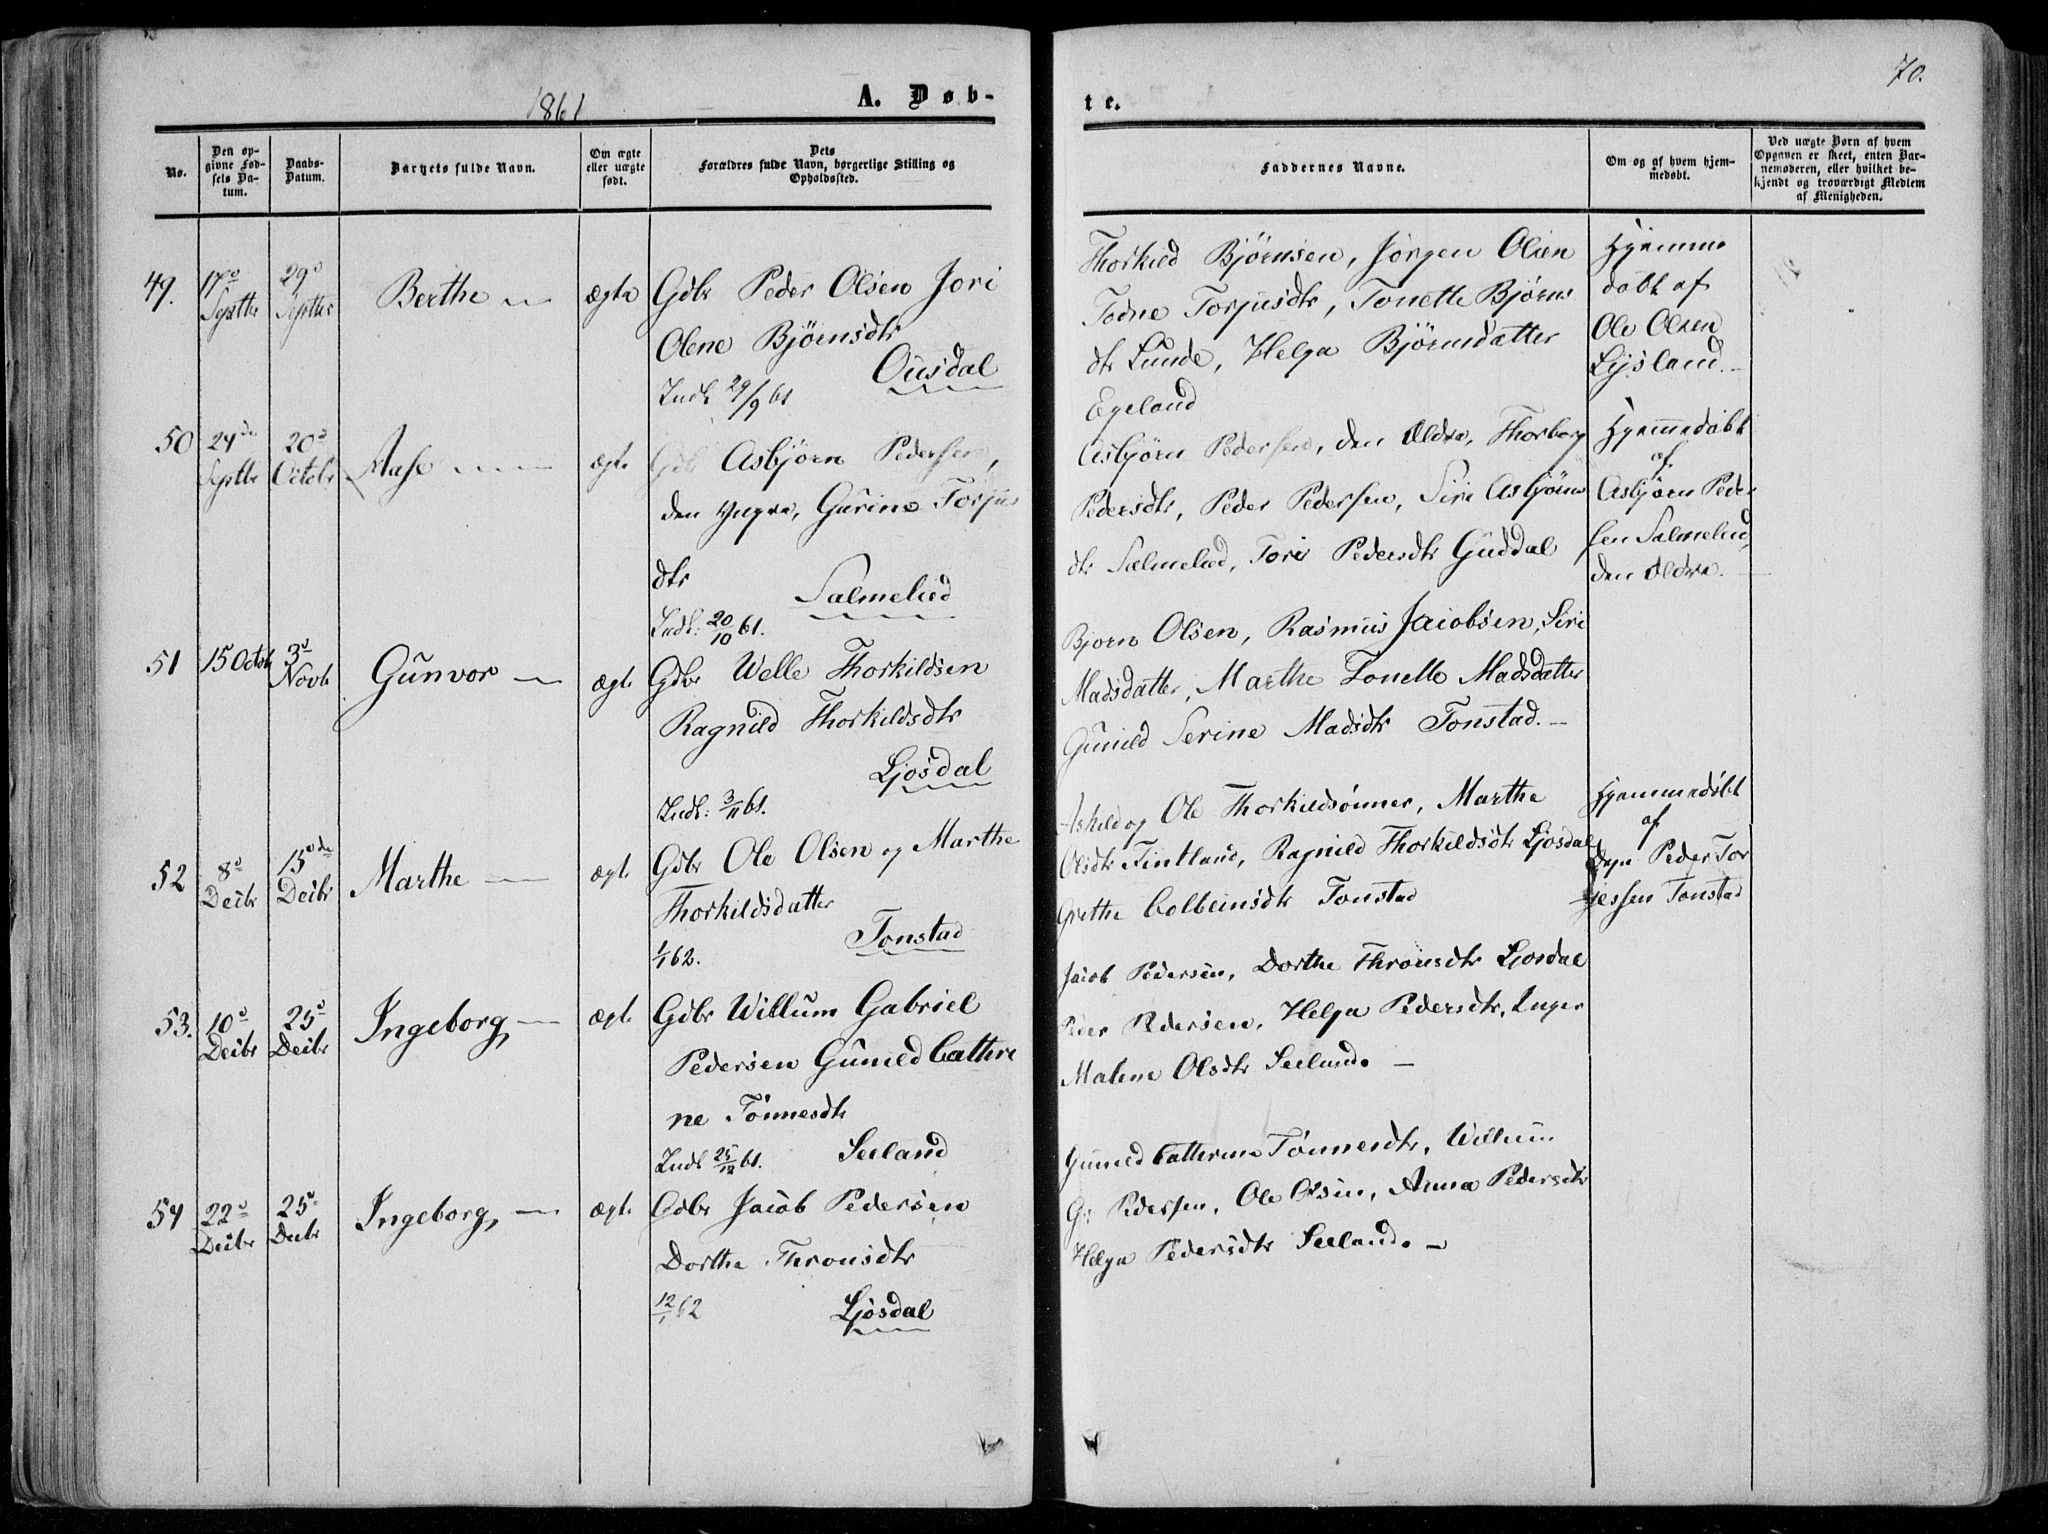 70.
1861
A. Døb-
te.
No.
Den op-
givne Fød-
sels Da-
tum.
Daabs-
Datum.
Barnets fulde Navn.
Om ægte
eller uægte
født.
Dets
Forældres fulde Navn, borgerlige Stilling og
Opholdssted.
Faddernes Navne.
Om og af hvem hjem-
medøbt.
Ved uægte Børn af hvem
Opgaven er skeet, enten Bar-
nemoderen, eller hvilket be-
kjendt og troværdigt Medlem
af Menigheden.
49.
17d
Septbr
29d
Septbr
Berthe
ægte
Gdbr Peder Olsen Jori
Olene Bjørnsdtr
Ousdal
Indl 29/9 61
Thorkild Bjørnsen, Jørgen Olsen
Todne Torjusdtr, Tonette Bjørns
dtr Lunde, Helga Bjørnsdatter
Egeland
Hjemme
døbt af
Ole Olsen
Lysland.
50
24de
Septbr
20d
Octobr
Aase
ægte
Gdbr Asbjørn Pedersen,
den Yngre, Gurine Torjus
dtr
Salmelied
Indl: 20/10 61.
Asbjørn Pedersen, den Ældre, Thorborg
Pedersdtr, Peder Pedersen, Siri Asbjørns
dtr Salmelied, Tori Pedersdtr Guddal
Hjemmedøbt
af
Asbjørn Peder
sen Salmelied,
den Ældre.
51
15 Octobr
3d
Novbr
Gunvor
ægte
Gdbr Welle Thorkildsen
Ragnild Thorkildsdtr
Ljosdal
Indl: 3/11 61.
Bjorn Olsen, Rasmus Jacobsen, Siri
Madsdatter, Marthe Tonette Madsdatter
Gunild Serine Madsdtr Tonstad.
52
8d
Decbr
15de
Decbr
Marthe
ægte
Gdbr Ole Olsen og Marthe
Thorkildsdatter
Tonstad
1/1 62.
Askild og Ole Thorkildsønner, Marthe
Olsdtr Fintland, Ragnild Thorkildsdtr Ljosdal
Grethe Colbeinsdtr Tonstad
Hjemmedøbt
af
Peder Tor
jessen Tonstad
53.
10d
Decbr
25d
Decbr
Ingeborg
ægte
Gdbr Willum Gabriel
Pedersen Gunild Cathri
ne Tønnesdtr
Seeland
Indl 25/12 61.
Jacob Pedersen, Dorthe Thronsdtr Ljosdal
Peder Pedersen, Helga Pedersdtr, Inger
Malene Olsdtr Seeland.
54
22d
Decbr
25d
Decbr
Ingeborg
ægte
Gdbr Jacob Pedersen
Dorthe Thronsdtr
Ljosdal
12/1 62
Gunild Catterine Tønnesdtr, Willum
G: Pedersen, Ole Olsen, Anna Pedersdtr
Helga Pedersdtr Seeland.